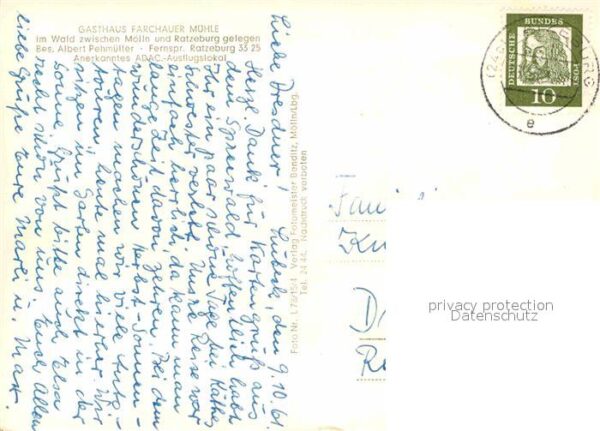 GASTHAUS FARCHAUER MÜHLE
im Wald zwischen Mölln und Ratzeburg gelegen
Bes. Albert Pehmüller - Fernspr. Ratzeburg 33 25
Anerkanntes ADAC.-Ausflugslokal
Lübeck, den 9.10.61.
Liebe Dresdner!
Herzl. Dank für Kartengruß aus
dem Spreewald, hoffentlich habt
Ihr ein paar schöne Tage bei Käthes
Schwester verlebt. Unsre Reise war
einfach herrlich, da kann man
lange Zeit davon zehren. Bei dem
wunderschönen Herbst-Sonnen-
tagen machen wir viele Auto-
touren, heute mal hierher. Wir
sitzen im Garten direkt in der
Sonne. Grüßt bitte auch Elsa
recht schön von uns, Euch Allen
liebe Grüße Eure Marei u. Max.
Foto Nr. L 76/15/4 Verlag Fotomeister Banditz, Mölln/Lbg.
Tel. 24 44. Nachdruck verboten
DEUTSCHE
BUNDES
POST
10
e
privacy protection
Datenschutz